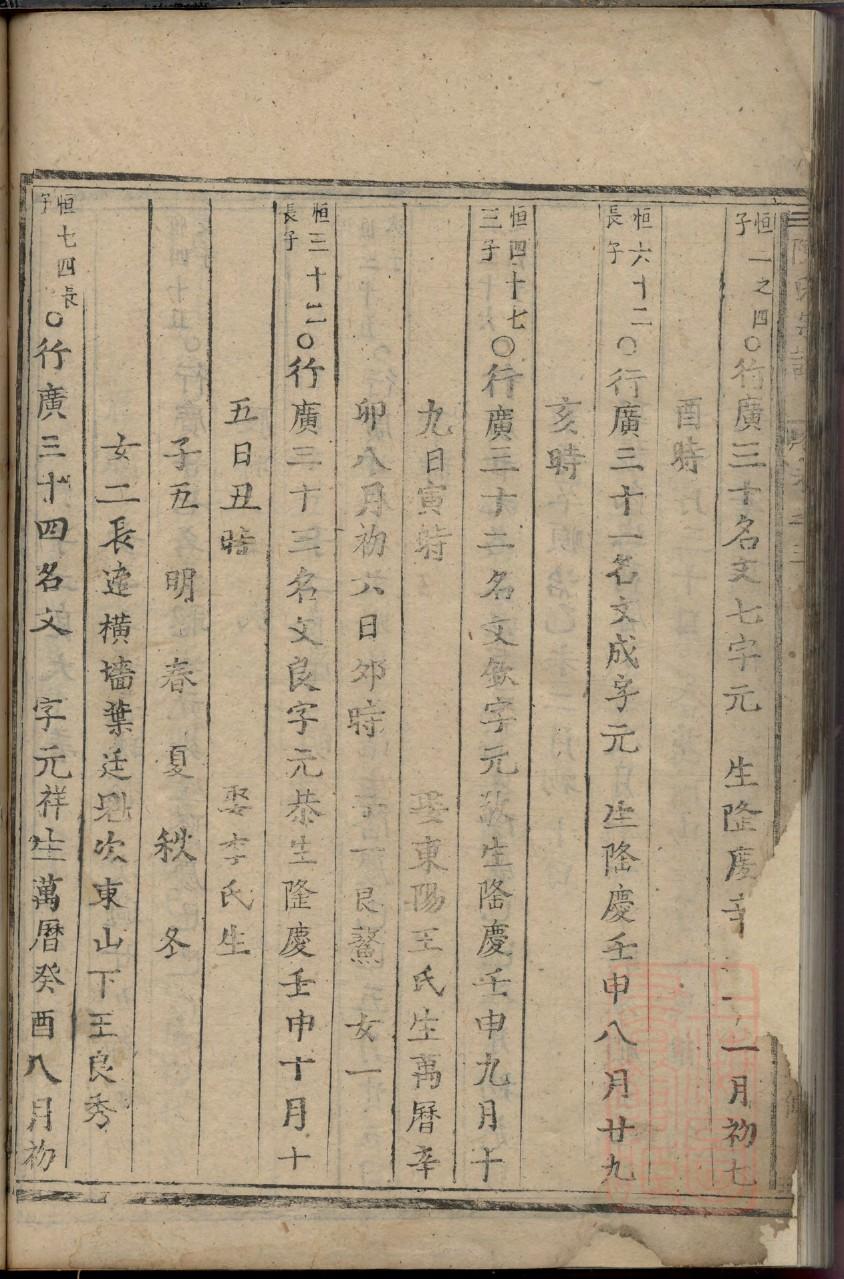 恒一之四子○行廣三十名文七字元　生隆慶辛　一月初七
酉時
恒六十二長子○行廣三十一名文成字元　生隆慶壬申八月廿九
亥時
恒四十七三子○行廣三十二名文欽字元敬生隆慶壬申九月十
九日寅時　娶東陽王氏生萬曆辛
卯八月初六日卯時　子一良鰲　女一
恒三十二長子○行廣三十三名文良字元恭生隆慶壬申十月十
五日丑時　娶李氏生
子五　明　春　夏　秋　冬
女二長適橫墻葉廷魁次東山下王良秀
恒七四長子○行廣三十四名文　字元祥生萬曆癸酉八月初